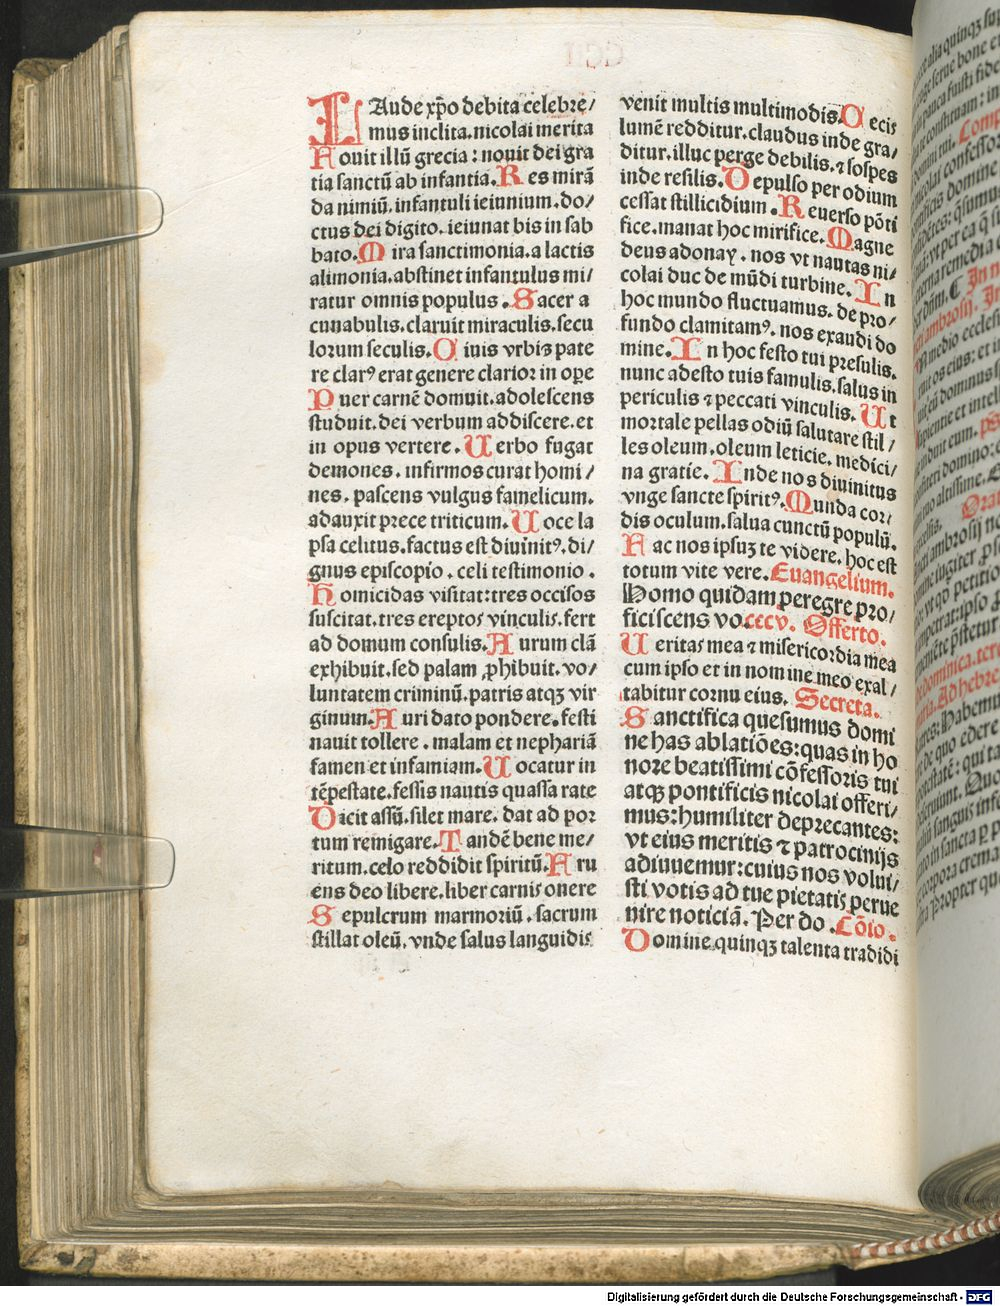 LAude xp̄o debita celebre/
mus inclita.nicolai merita
Nouit illū grecia : nouit dei gra
tia sanctū ab infantia.Res mirā
da nimiū.infantuli ieiunium.do/
ctus dei digito.ieiunat bis in sab
bato.Mira sanctimonia.a lactis
alimonia.abstinet infantulus mi/
ratur omnis populus.Sacer a
cunabulis.claruit miraculis.secu
lorum seculis.Ciuis vrbis pate
re clarꝰ erat genere clarior in oꝑe
Puer carnē domuit.adolescens
studuit.dei verbum addiscere.et
in opus vertere.Uerbo fugat
demones.infirmos curat homi/
nes.pascens vulgus famelicum.
adauxit prece triticum.Uoce la
psa celitus.factus est diuinitꝰ.di/
gnus episcopio.celi testimonio.
Homicidas visitat:tres occisos
suscitat.tres ereptos vinculis.fert
ad domum consulis.Aurum clā
exhibuit.sed palam ꝓhibuit.vo/
luntatem criminū.patris atqꝫ vir
ginum.Auri dato pondere.festi
nauit tollere.malam et nephariā
famen et infamiam.Uocatur in
tēpestate.fessis nautis quassa rate
Dicit assū.silet mare.dat ad por
tum remigare.Tandē bene me/
ritum.celo reddidit spiritū.Aru
ens deo libere.liber carnis onere
Sepulcrum marmoriū.sacrum
stillat oleū.vnde salus languidis
venit multis multimodis.Cecis
lumē redditur.claudus inde gra/
ditur.illuc perge debilis.⁊ sospes
inde resilis.Depulso per odium
cessat stillicidium.Reuerso pōti
fice.manat hoc mirifice.Magne
deus adonay.nos vt nautas ni/
colai duc de mūdi turbine.In
hoc mundo fluctuamus.de pro/
fundo clamitamꝰ.nos exaudi do
mine.In hoc festo tui presulis.
nunc adesto tuis famulis.salus in
periculis ⁊ peccati vinculis.Ut
mortale pellas odiū salutare stil/
les oleum.oleum leticie.medici/
na gratie.Inde nos diuinitus
vnge sancte spiritꝰ.Munda cor/
dis oculum.salua cunctū populū.
Fac nos ipsuꝫ te videre.hoc est
totum vite vere.Euangelium.
Homo quidam peregre pro/
ficiscens vo.cccv. Offerto.
Ueritas mea ⁊ misericordia mea
cum ipso et in nomine meo exal/
tabitur cornu eius.Secreta.
Sanctifica quesumus domi
ne has ablatiōes:quas in ho
nore beatissimi cōfessoris tui
atqꝫ pontificis nicolai offeri/
mus:humiliter deprecantes:
vt eius meritis ⁊ patrocinijs
adiuuemur:cuius nos volui/
sti votis ad tue pietatis perue
nire noticiā.Per do.Cōio.
Domine quinqꝫ talenta tradidi
Digitalisierung gefördert durch die Deutsche Forschungsgemeinschaft - DFG